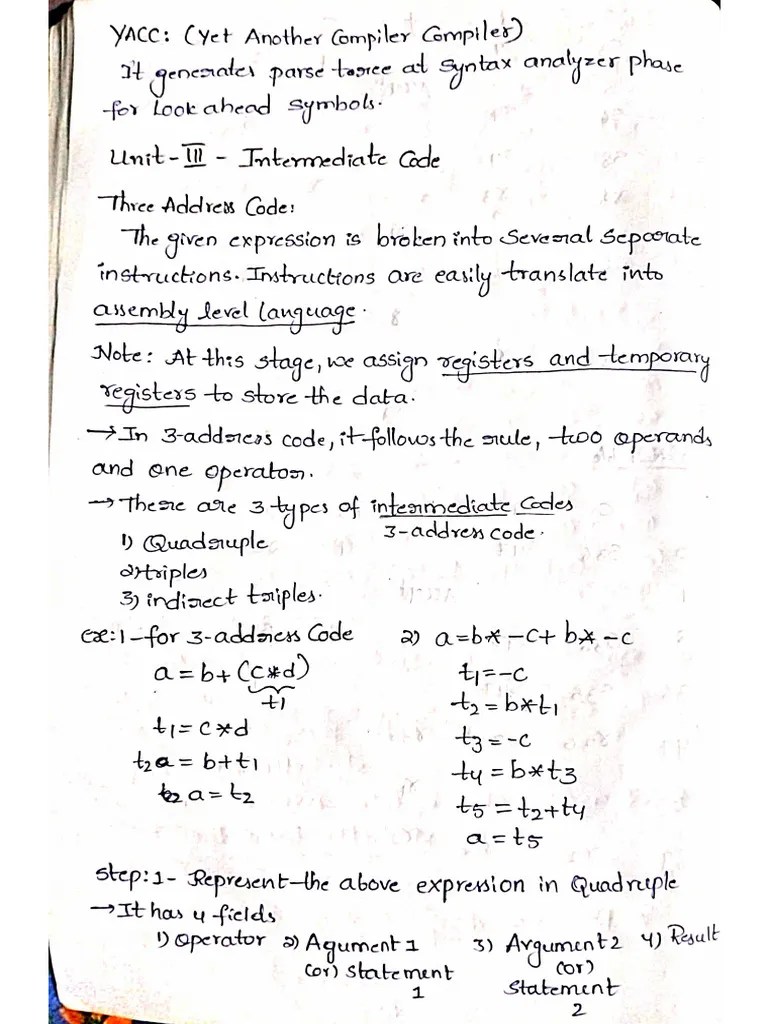 YACC: (Yet Another Compiler Compiler)
It generates parse tree at syntax analyzer phase
for Look ahead symbols.
Unit-III - Intermediate Code
Three Address Code:
The given expression is broken into several separate
instructions. Instructions are easily translate into
assembly level language.
Note: At this stage, we assign registers and temporary
registers to store the data.
→ In 3-address code, it follows the rule, two operands
and one operator.
→ There are 3 types of intermediate codes
3-address code.
1) Quadruple
2) triples
3) indirect triples.
ex:1-for 3-address Code
a = b + (c*d)
t1
t1 = c*d
t2 = b+t1
a = t2
2) a=b* -c+ b* -c
t1=-c
t2 = b*t1
t3 = -c
t4 = b*t3
t5 = t2+t4
a = t5
Step:1- Represent the above expression in Quadruple
→ It has 4 fields
1) Operator 2) Agument 1 3) Argument 2 4) Result
(or) statement (or)
1 Statement
2